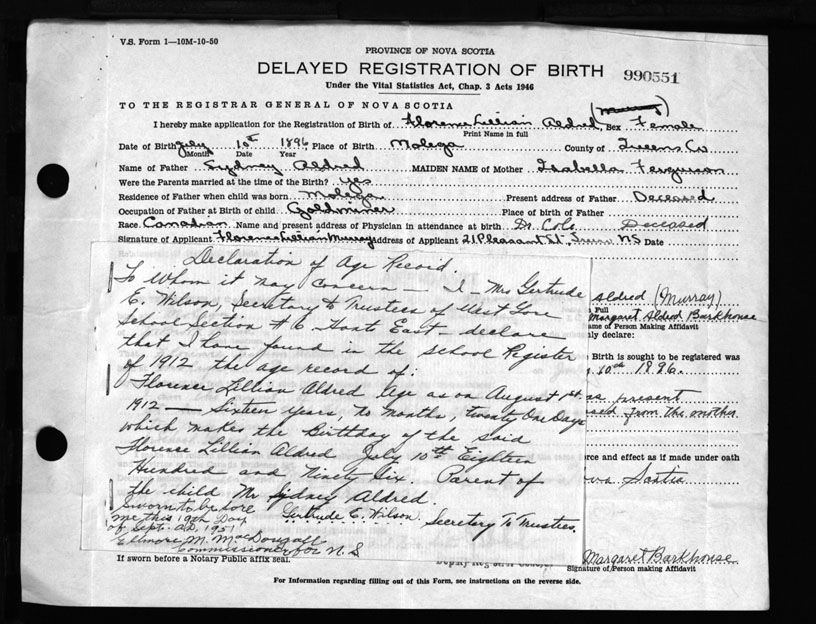 V.S. Form 1—10M-10-50
PROVINCE OF NOVA SCOTIA
DELAYED REGISTRATION OF BIRTH
990551
Under the Vital Statistics Act, Chap. 3 Acts 1946
TO THE REGISTRAR GENERAL OF NOVA SCOTIA
I hereby make application for the Registration of Birth of Florence Lillian Aldred, Sex Female
Print Name in full
Date of Birth July 10th 1896 Place of Birth Molega County of Queens Co
Month Date Year
Name of Father Sydney Aldred MAIDEN NAME of Mother Isabella Ferguson
Were the Parents married at the time of the Birth? yes
Residence of Father when child was born Molega Present address of Father Deceased
Occupation of Father at Birth of child Goldminer Place of birth of Father
Race Canadian Name and present address of Physician in attendance at birth Dr. Cole Deceased
Signature of Applicant Florence Lillian Murray Address of Applicant 21 Pleasant St, Truro NS Date
Declaration of Age Record.
To Whom it may concern — I — Mrs Gertrude
E. Wilson, Secretary to Trustees of West Gore
School Section # 6 Hants East — declare
that I have found in the school Register
of 1912 the age record of:
Florence Lillian Aldred Age as on August 1st
1912 — Sixteen years, no months, twenty One Days
which makes the Birthday of the said
Florence Lillian Aldred July 10th Eighteen
Hundred and Ninety Six. Parent of
the child Mr Sydney Aldred.
Sworn to before
me this 19th Day
of Sept. A.D. 1951
Gertrude E. Wilson, Secretary To Trustees.
Ellmore M. MacDougall
Commissioner for N.S
Aldred (Murray)
Full
Margaret Aldred Barkhouse
ame of Person Making Affidavit
ly declare:
Birth is sought to be registered was
10th 1896.
as present
from the mother
rce and effect as if made under oath
Scotia
If sworn before a Notary Public affix seal.
Margaret Barkhouse
Signature of Person making Affidavit
For Information regarding filling out of this Form, see instructions on the reverse side.